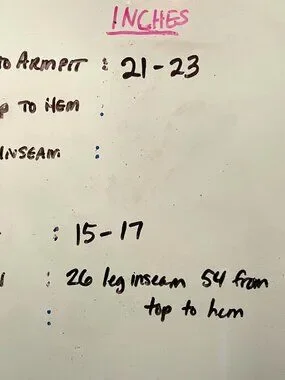 INCHES
TO ARMPIT : 21-23
TO HEM :
INSEAM :
: 15-17
: 26 leg inseam 54 from
top to hem
: